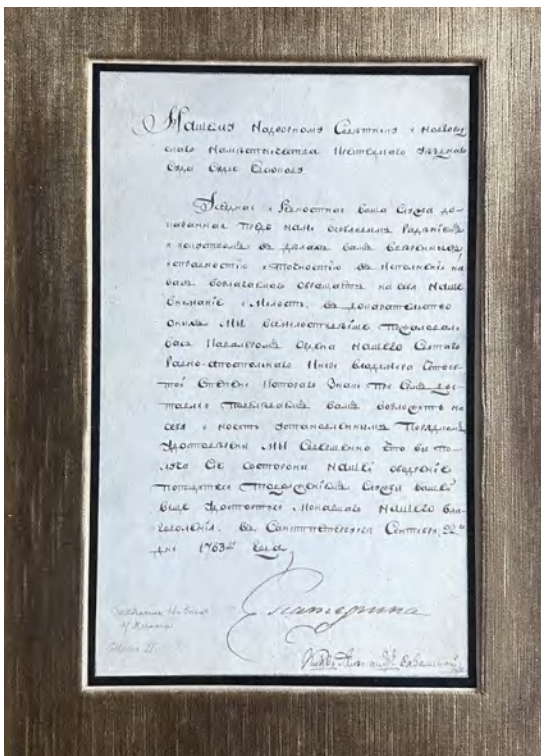 Нашему Надворному Советнику и
Намѣстничества Уѣзднаго
Суда Судье
Усердная и Ревностная Ваша Служба до-
казанная предъ нами особеннымъ Радѣніемъ
въ дѣлахъ вамъ ввѣренныхъ
въ исполненіи на
васъ возлагаемое обращаетъ на себя Наше
Вниманіе и Милость. въ доказательство
МЫ Всемилостивѣйше Пожаловали
васъ Кавалеромъ Ордена Нашего Святаго
Равно-апостольнаго Князя Владимера
той Степени Котораго Знакъ при семъ дос-
тавляя Повелѣваемъ вамъ возложить на
себя и носить установленнымъ Порядкомъ
Удостовѣрены МЫ Совершенно Что вы По-
луча Сіе состороны Нашей ободреніе
потщитесь Продолженіемъ Службы вашей
Вяще Удостоиться Монаршаго Нашего Бла-
говоленія. въ Санктпетербурге Сентября 22го
дня 1763го Года
Екатерина
Catherine the Great
of Russia